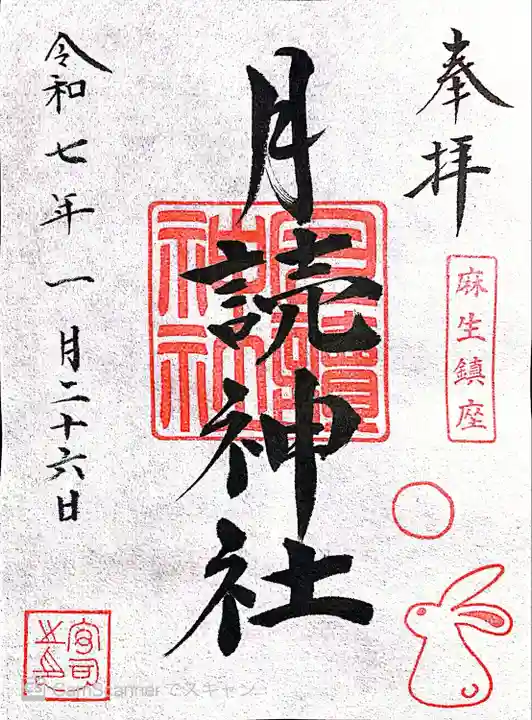 奉拝
麻生鎮座
月読神社
月讀神社
令和七年一月二十六日
宮司之印
CamScannerでスキャン